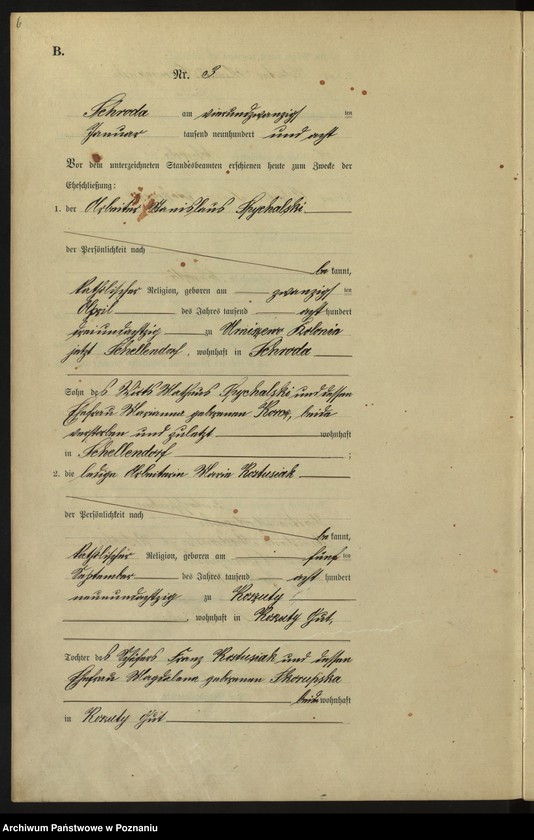 6
B.
Nr. 3
Schroda am vierundzwanzigsten
Januar tausend neunhundert und acht
Vor dem unterzeichneten Standesbeamten erschienen heute zum Zwecke der
Eheschließung:
1. der Arbeiter Stanislaus Spychalski
der Persönlichkeit nach
be kannt,
katholischer Religion, geboren am zwanzigsten
April des Jahres tausend acht hundert
dreiundachtzig zu Kolonie
jetzt Schellendorf, wohnhaft in Schroda
Sohn des Wirts Mathäus Spychalski und dessen
Ehefrau Marianna geborenen beide
verstorben und zuletzt wohnhaft
in Schellendorf ;
2. die ledige Arbeiterin Maria Kostusiak
der Persönlichkeit nach
be kannt,
katholischer Religion, geboren am fünften
September des Jahres tausend acht hundert
neunundachtzig zu Koszuty
, wohnhaft in Koszuty Gut,
Tochter des Schäfers Franz Kostusiak und dessen
Ehefrau Magdalena geborenen Skorupska
beide wohnhaft
in Koszuty Gut
Archiwum Państwowe w Poznaniu